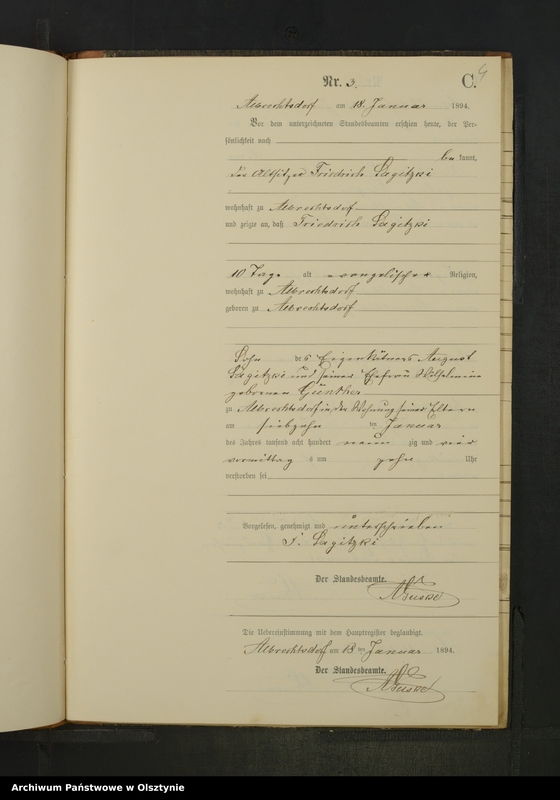 Nr. 3.
C.
Albrechtsdorf am 18. Januar 1894.
Vor dem unterzeichneten Standesbeamten erschien heute, der Per-
sönlichkeit nach
be kannt,
der Altsitzer Friedrich Sagitzki
wohnhaft zu Albrechtsdorf
und zeigte an, daß Friedrich Sagitzki
10 Tage alt evangelischer Religion,
wohnhaft zu Albrechtsdorf
geboren zu Albrechtsdorf
Sohn des Eigenkätners August
Sagitzki und seiner Ehefrau Wilhelmine
geborenen Günther
zu Albrechtsdorf in der Wohnung seiner Eltern
am siebzehn ten Januar
des Jahres tausend acht hundert neun zig und vier
vormittag s um zehn Uhr
verstorben sei
Vorgelesen, genehmigt und unterschrieben
F. Sagitzki
Der Standesbeamte.
Die Uebereinstimmung mit dem Hauptregister beglaubigt.
Albrechtsdorf am 18 ten Januar 1894.
Der Standesbeamte.
Archiwum Państwowe w Olsztynie